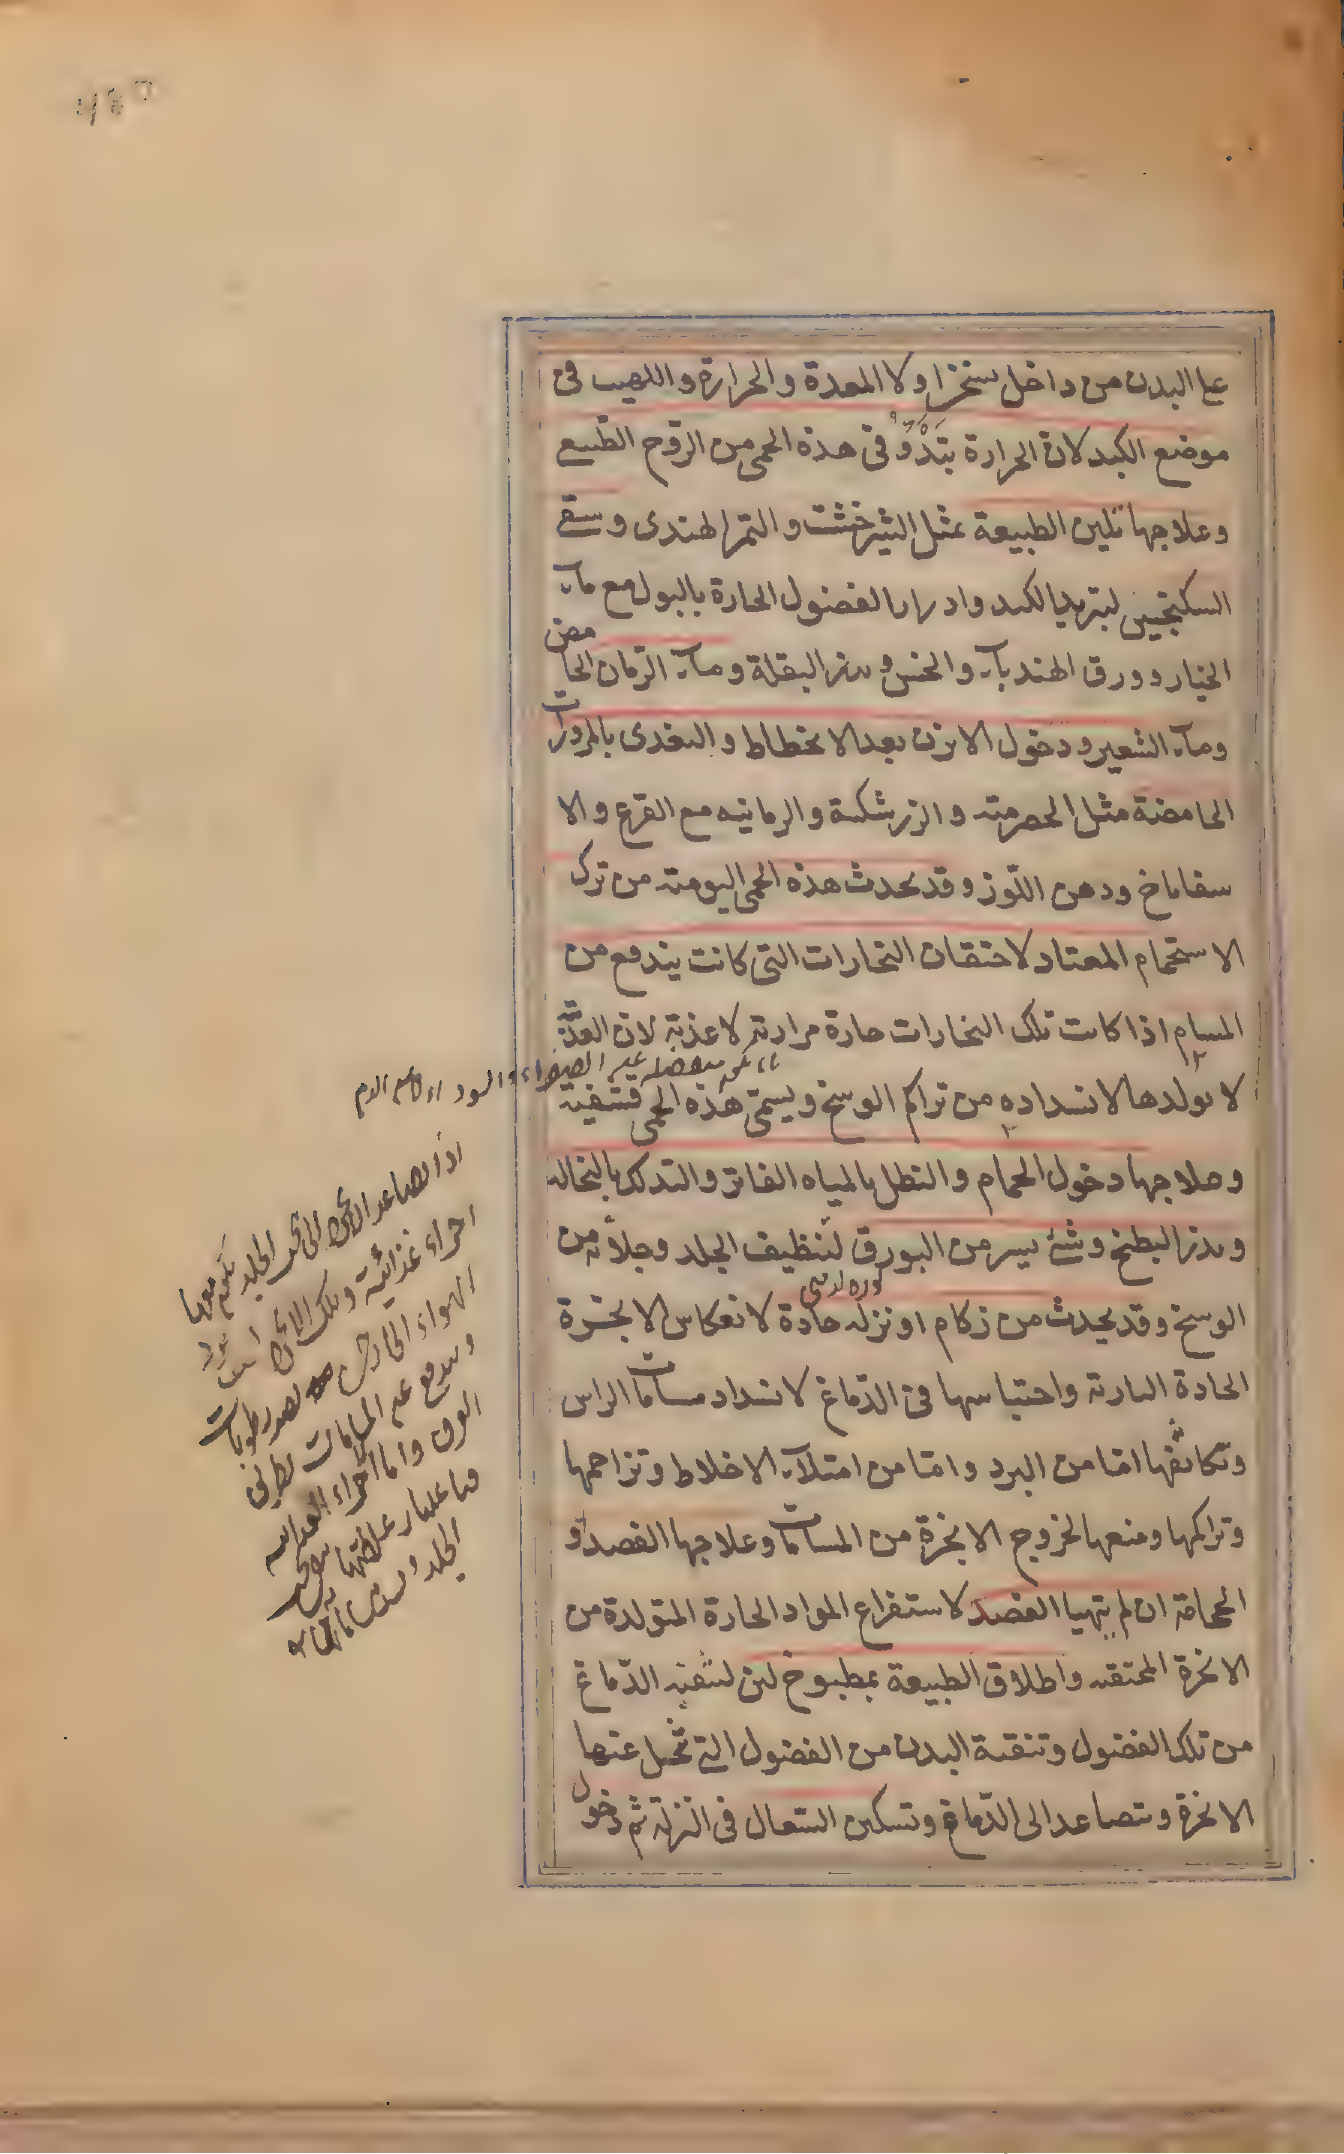 على البدن من داخل سخنزا ولا المعدة والحرارة واللهيب فى
موضع الكبد لان الحرارة بتدؤ فى هذه الحمى من الروح الطبيعى
وعلاجها تليين الطبيعة بمثل الشيرخشت والتمر الهندى وسقى
السكنجبين لتبريد الكبد وادرار الفضول الحارة بالبول مع ماء
الخيار وورق الهندباء والخس وبذر البقلة وماء الرمان الحامض
وماء الشعير ودخول الابزن بعد الانحطاط والتغذى بالمزورات
الحامضة مثل الحصرمية والزرشكية والرمانية مع القرع والا
سفاناخ ودهن اللوز وقد يحدث هذه الحمى اليومية من ترك
الاستحمام المعتاد لاحتقان البخارات التى كانت يندفع من
المسام اذا كانت تلك البخارات حارة مرارية لا عذبة لان العذبة
لا يولدها لانسداده من تراكم الوسخ ويسمى هذه الحمى قشفية
وعلاجها دخول الحمام والتطل بالمياه الفاترة والتدلك بالنخالة
وبذر البطيخ وشئ يسير من البورق لتنظيف الجلد وجلائه من
بوره ارمنى
الوسخ وقد يحدث من زكام او نزلة حادة لانعكاس الابخرة
الحادة البارية واحتباسها فى الدماغ لانسداد مسامات الراس
وتكاثفها اما من البرد واما من امتلاء الاخلاط وتزاحمها
وتراكمها ومنعها لخروج الابخرة من المسامات وعلاجها الفصد او
الحجامة ان لم يتهيا الفصد لاستفراغ المواد الحارة المتولدة من
الابخرة المحتقنة واطلاق الطبيعة بمطبوخ لين لتنقية الدماغ
من تلك الفضول وتنقية البدن من الفضول التى تحلل عنها
الابخرة وتتصاعد الى الدماغ وتسكين السعال فى النزلة ثم دخول
الصفراء والسوداء الدم
اذا تصاعد الابخرة الى تحت الجلد يكون معها
اجزاء غذائية وتلك الابخرة
الهواء الخارجى تصير رطوبات
ويندفع عن المسامات بطريق
العرق واما اجزاء الغذائية
الجلد